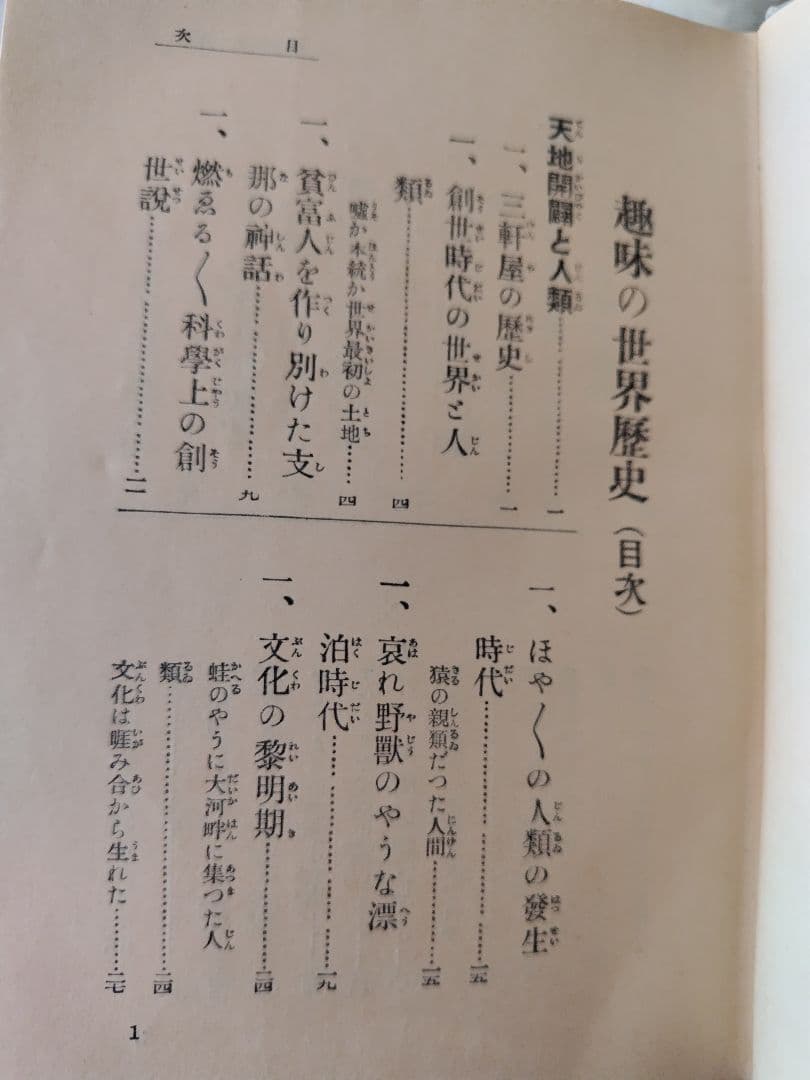 目次
趣味の世界歴史（目次）
天地開闢と人類……………一
一、三軒屋の歴史……………一
一、創世時代の世界と人
類……………四
嘘か本統か世界最初の土地……四
一、貧富人を作り別けた支
那の神話……………九
一、燃ゑる〳〵科學上の創
世説……………一一
一、ほや〳〵の人類の發生
時代……………一五
猿の親類だつた人間……………一五
一、哀れ野獸のやうな漂
泊時代……………一九
一、文化の黎明期……………二四
蛙のやうに大河畔に集つた人
類……………二四
文化は啀み合から生れた………二七
1